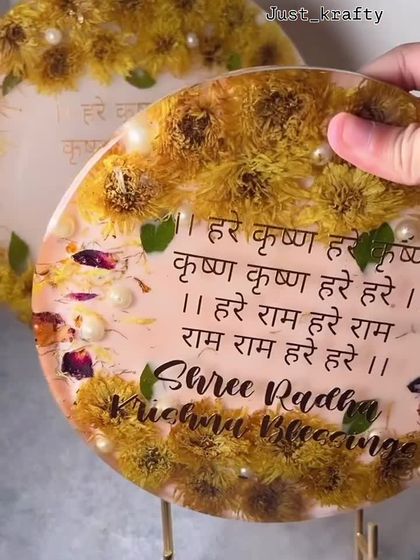 Just_krafty
।। हरे
कृष्ण
।। हरे कृष्ण हरे कृष्ण
कृष्ण कृष्ण हरे हरे ।
।। हरे राम हरे राम
राम राम हरे हरे ।।
Shree Radha
Krishna Blessings